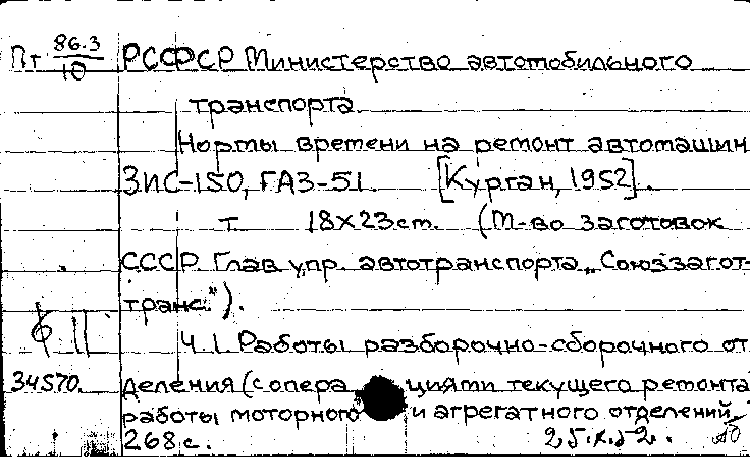 Пт 86.3/10 РСФСР Министерство автомобильного
транспорта.
Нормы времени на ремонт автомашин
ЗИС-150, ГАЗ-51. [Курган, 1952].
т. 18x23см. (М-во заготовок
СССР. Глав. упр. автотранспорта „Союззагот-
транс.").
Ч.1. Работы разборочно-сборочного от
34570. деления (с операциями текущего ремонта
работы моторного и агрегатного отделений
268 с. 25.X.52.